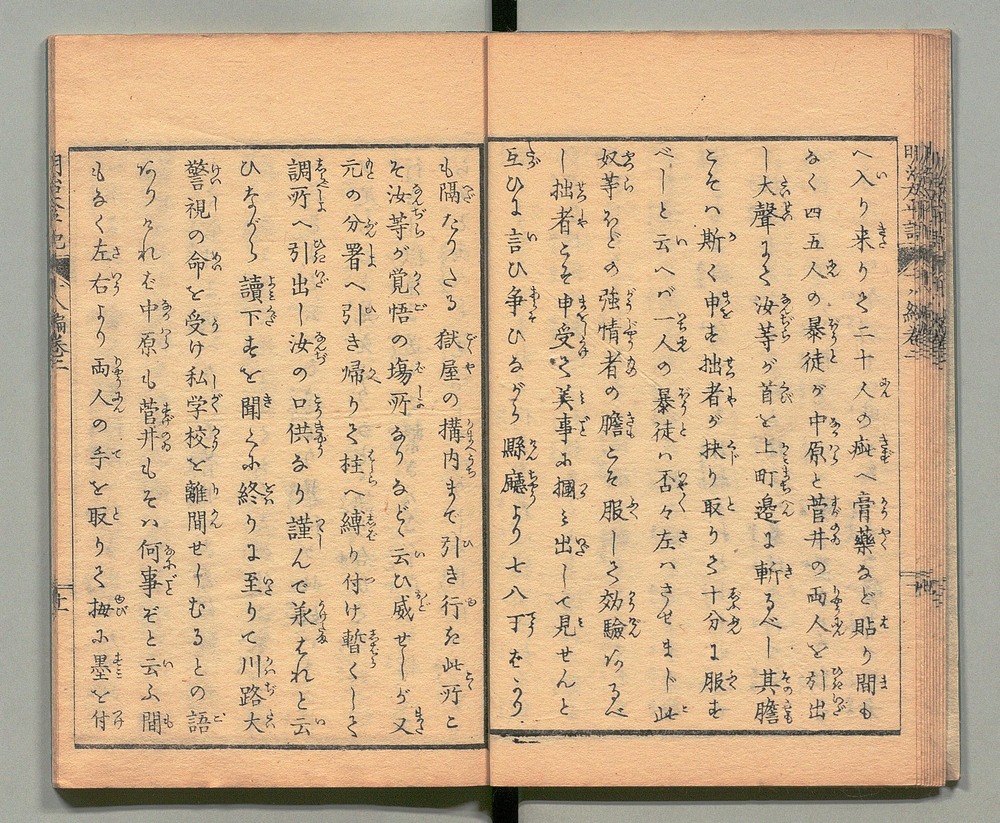 へ入り来りて二十人の疵へ膏藥など貼り間も
なく四五人の暴徒が中原と菅井の両人を引出
し大聲にて汝等が首を上町邉に斬るべし其膽
こそハ斯く申す拙者が抉り取りて十分に服す
べしと云へバ一人の暴徒ハ否々左ハさせまじ此
奴等などの強情者の膽こそ服して效驗あるべ
し拙者こそ申受て美事に摑み出して見せんと
互ひに言ひ争ひながら縣廳より七八丁をかり
も隔たりたる獄屋の構内まで引き行き此所こ
そ汝等が覚悟の塲所なりなどゝ云ひ威せしが又
元の分署へ引き帰りて柱へ縛り付け暫くして
調所へ引出し汝の口供なり謹んで承はれと云
ひながら讀下すを聞くに終りに至りて川路大
警視の命を受け私学校を離間せしむるとの語
ありければ中原も菅井もそハ何事ぞと云ふ間
もなく左右より両人の手を取りて拇に墨を付
明治太平記
十八編巻二
十一